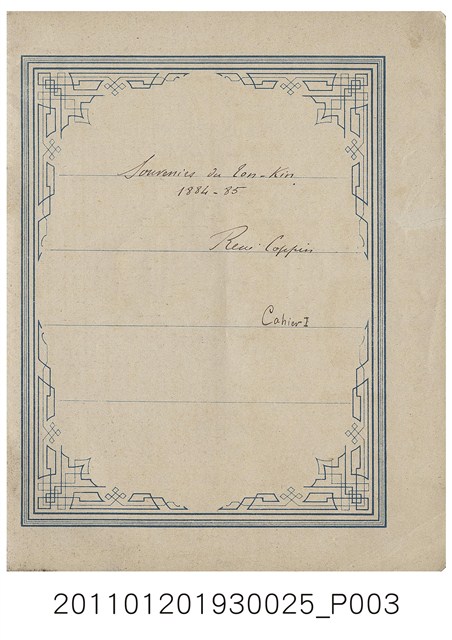 Souvenirs du Ton-Kin
1884-85
René Coppin
Cahier I
201101201930025_P003